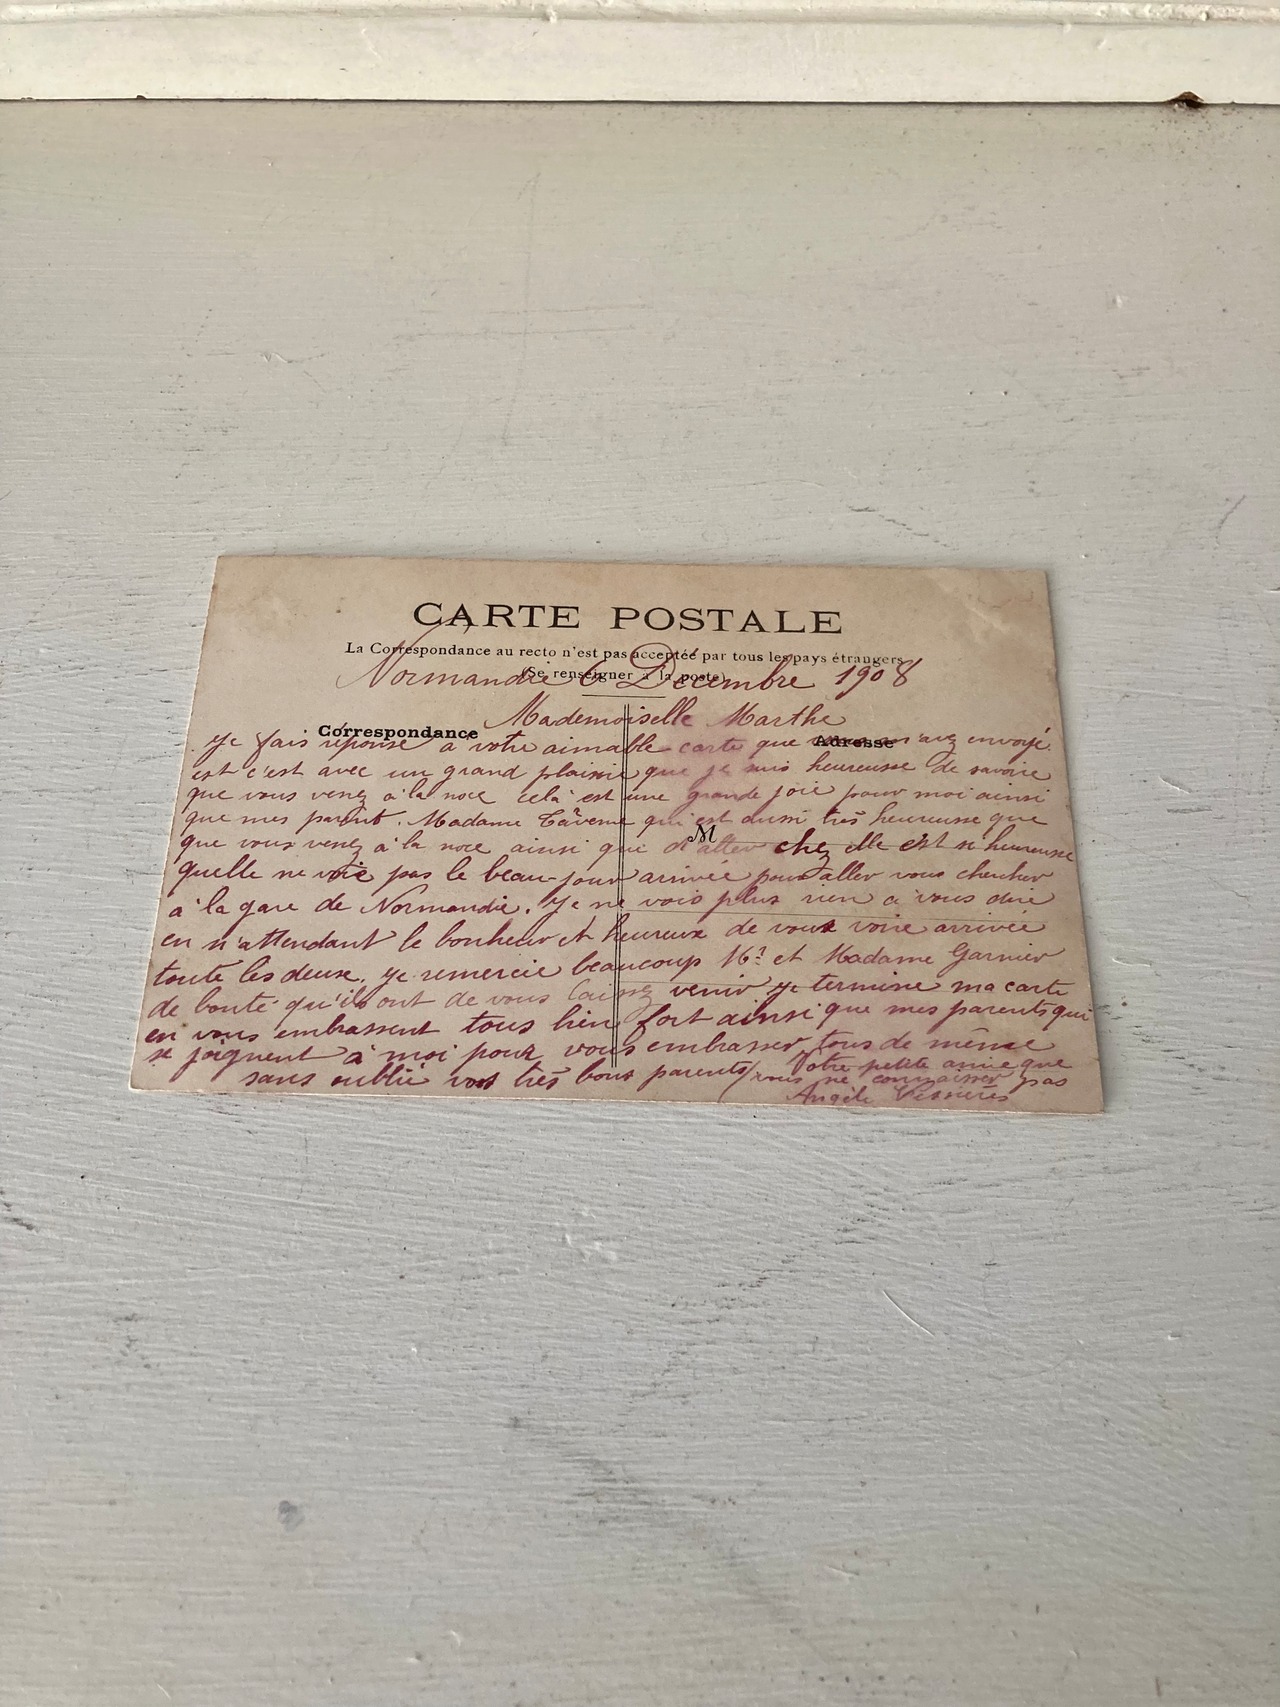 CARTE POSTALE
La Correspondance au recto n'est pas acceptée par tous les pays étrangers
(Se renseigner à la poste)
Normandie le Décembre 1908
Mademoiselle Marthe
Correspondance
Adresse
Je fais réponse à votre aimable carte que m'avez envoyé
est c'est avec un grand plaisir que je suis heureusse de savoire
que vous venez à la noce celà est une grande joie pour moi ainsi
que mes parent. Madame qui est aussi très heureusse que
M
que vous venez à la noce ainsi que d'aller chez elle est si heureusse
quelle ne voie pas le beau jour arrivée pour aller vous chercher
à la gare de Normandie. Je ne vois plus rien a vous dire
en n'attendant le bonheur et heureux de vous voire arrivée
toute les deux. Je remercie beaucoup Mr et Madame Garnier
de bonté qu'ils ont de vous laissez venir je termine ma carte
en vous embrassent tous bien fort ainsi que mes parents qui
se joignent à moi pour vous embrasser tous de même
sans oublié vos très bons parents
Votre petite amie que
vous ne connaisser pas
Angèle